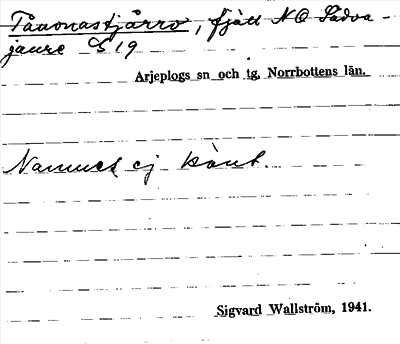 Tavonastjårro, fjäll NO Sadva-
jaure S 19
Arjeplogs sn och tg, Norrbottens län.
Namnet ej känt.
Sigvard Wallström, 1941.